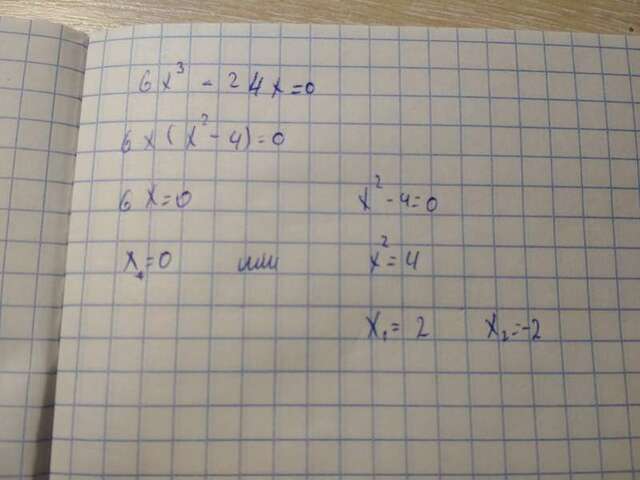 6x³ - 24x=0
6x(x²-4)=0
6x=0 x²-4=0
x=0 или x²=4
x₁=2 x₂=-2